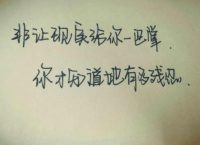 非让现实给你一巴掌
你才知道地有多残忍.